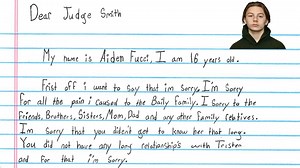 Dear Judge Smith
My name is Aiden Fucci, I am 16 years old.
Frist off i want to say that im sorry. I'm sorry
for all the pain i caused to the Baily family. I sorry to the
Friends, Brothers, Sisters, Mom, Dad and any other family reltives.
I'm sorry that you dident get to know her that long.
You did not have any long relationship's with Tristen
and for that i'm sorry.